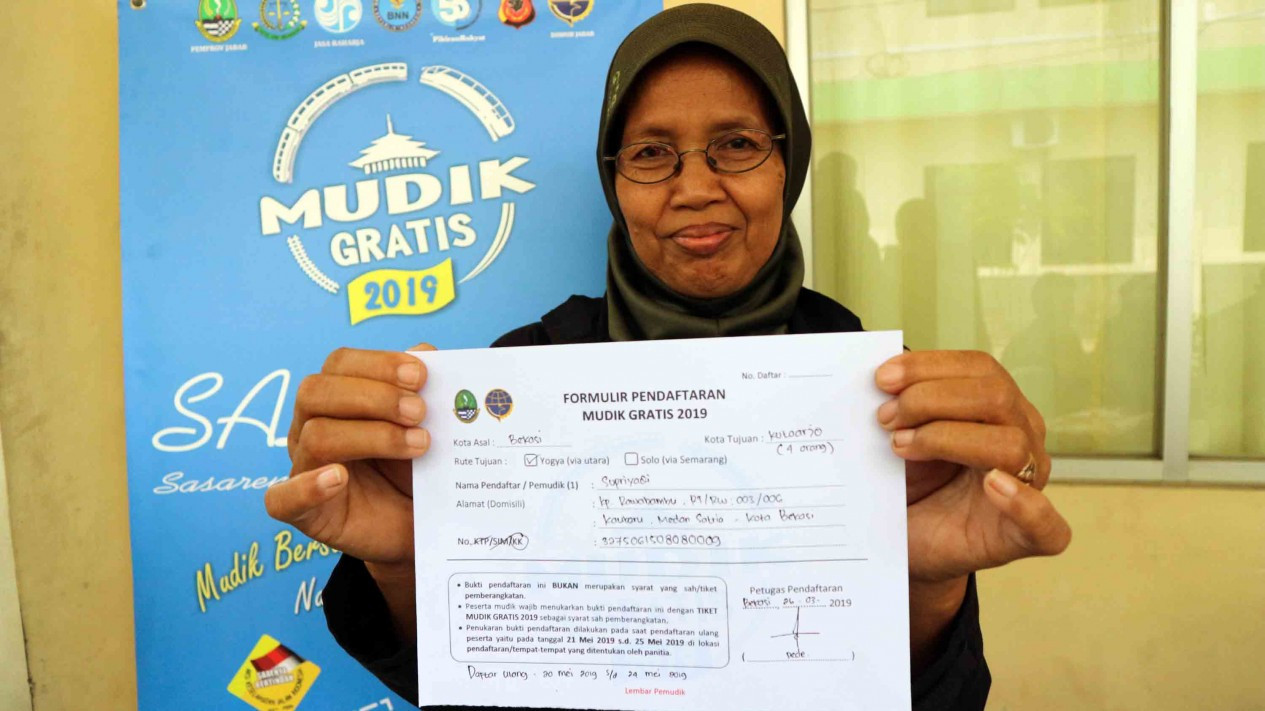 PEMPROV JABAR
JASA RAHARJA
BNN
PikiranRakyat
DISHUB JABAR
MUDIK
GRATIS
2019
SA
Mudik Bers
Na
No. Daftar :
FORMULIR PENDAFTARAN
MUDIK GRATIS 2019
Kota Asal : Bekasi
Kota Tujuan : Kutoarjo
(4 orang)
Rute Tujuan : Yogya (via utara) Solo (via Semarang)
Nama Pendaftar / Pemudik (1) : Supriyadi
Alamat (Domisili) : kp Rawabambu, RT/RW : 003/006
: Medan Satria - Kota Bekasi
No. KTP/SIM/KK : 3275061508080009
• Bukti pendaftaran ini BUKAN merupakan syarat yang sah/tiket
pemberangkatan.
• Peserta mudik wajib menukarkan bukti pendaftaran ini dengan TIKET
MUDIK GRATIS 2019 sebagai syarat sah pemberangkatan.
• Penukaran bukti pendaftaran dilakukan pada saat pendaftaran ulang
peserta yaitu pada tanggal 21 Mei 2019 s.d. 25 Mei 2019 di lokasi
pendaftaran/tempat-tempat yang ditentukan oleh panitia.
Petugas Pendaftaran
Bekasi, 26 - 03 - 2019
( Dede )
Daftar Ulang - 20 mei 2019 s/d 24 mei 2019
Lembar Pemudik